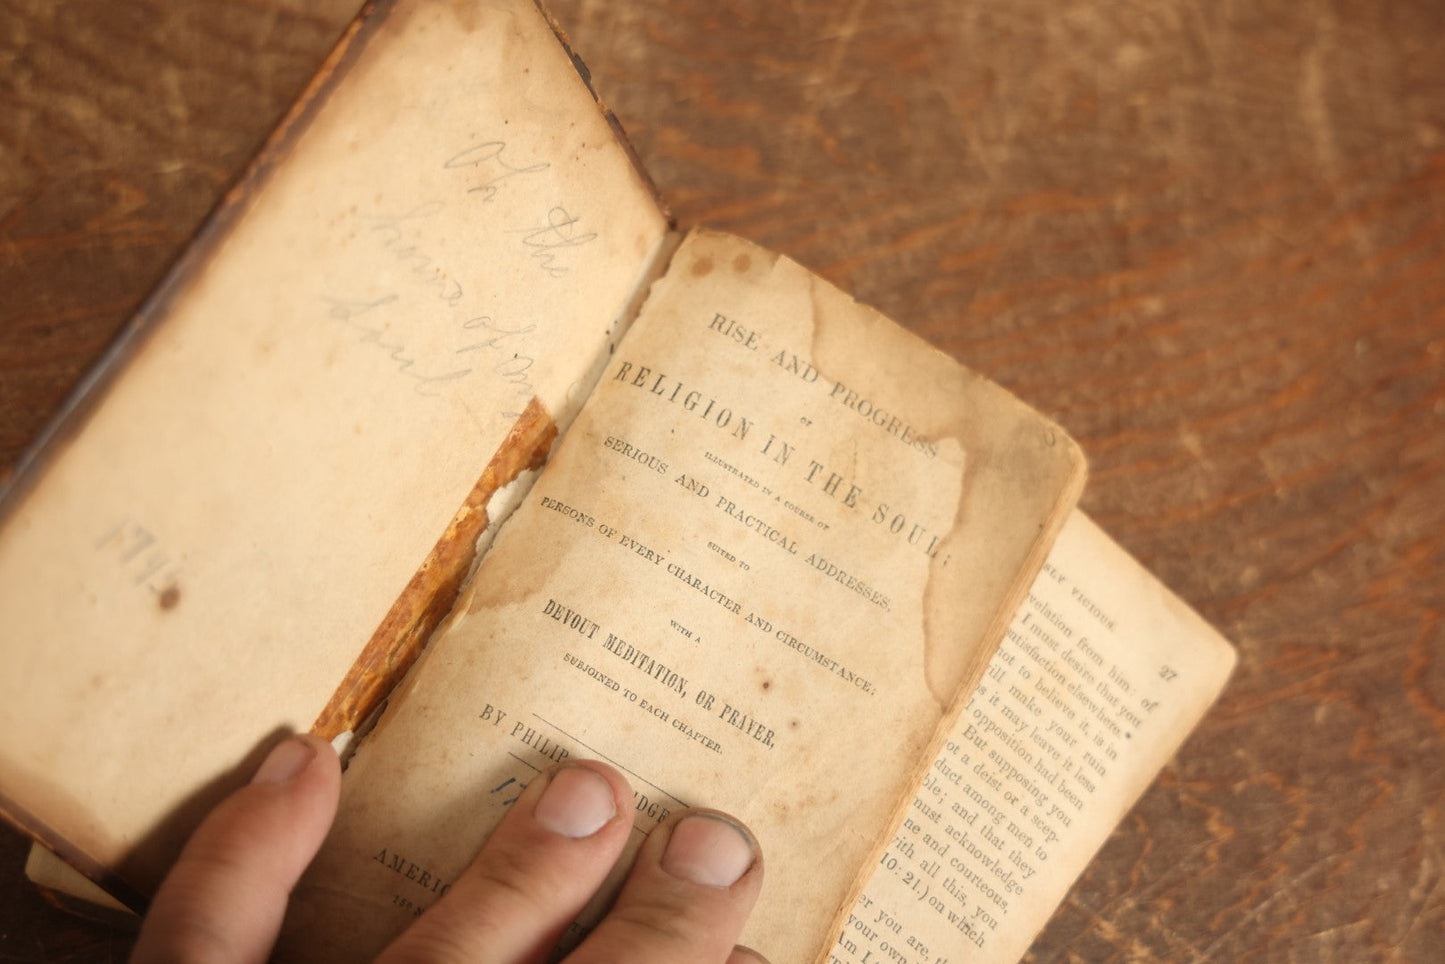 Oh the
home of
Soul
RISE AND PROGRESS
OF
RELIGION IN THE SOUL;
ILLUSTRATED IN A COURSE OF
SERIOUS AND PRACTICAL ADDRESSES,
SUITED TO
PERSONS OF EVERY CHARACTER AND CIRCUMSTANCE;
WITH A
DEVOUT MEDITATION, OR PRAYER,
SUBJOINED TO EACH CHAPTER.
BY PHILIP
17
AMERIC
150 N
SLY VICIOUS.
27
velation from him: of
I must desire that you
satisfaction elsewhere.
not to believe it, is in
will make your ruin
as it may leave it less
opposition had been
But supposing you
ot a deist or a scep-
duct among men to
ble; and that they
must acknowledge
ne and courteous,
with all this, you
10:21.) on which
er you are,
your own
Am I